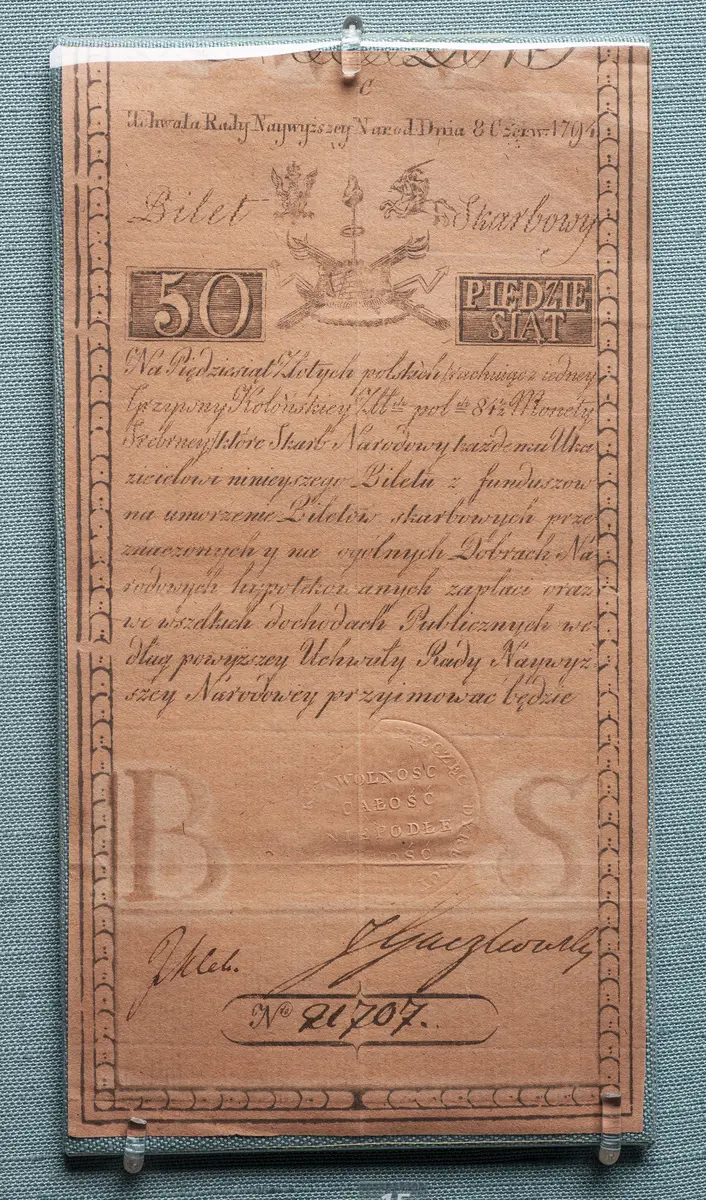 C
Uchwała Rady Naywyższey Narod: Dnia 8 Czerw. 1794
Bilet Skarbowy
50 PIĘDZIE
SIĄT
Na Piędziesiąt Złotych polskich rachuiąc z iedney
Grzywny Kolońskiey Złł. pol. 84½ Monety
Srebrney które Skarb Narodowy każdemu Uka
zicielowi ninieyszego Biletu z funduszów
na umorzenie Biletów skarbowych prze
znaczonych y na ogólnych Dobrach Na
rodowych hypotekowanych zapłaci oraz
we wszelkich dochodach Publicznych we
dług powyższey Uchwały Rady Naywyż
szey Narodowey przyimować będzie
WOLNOŚĆ
CAŁOŚĆ
NIEPODLE
GŁOŚĆ
B S
J Gaczkowski
No 21707.
15